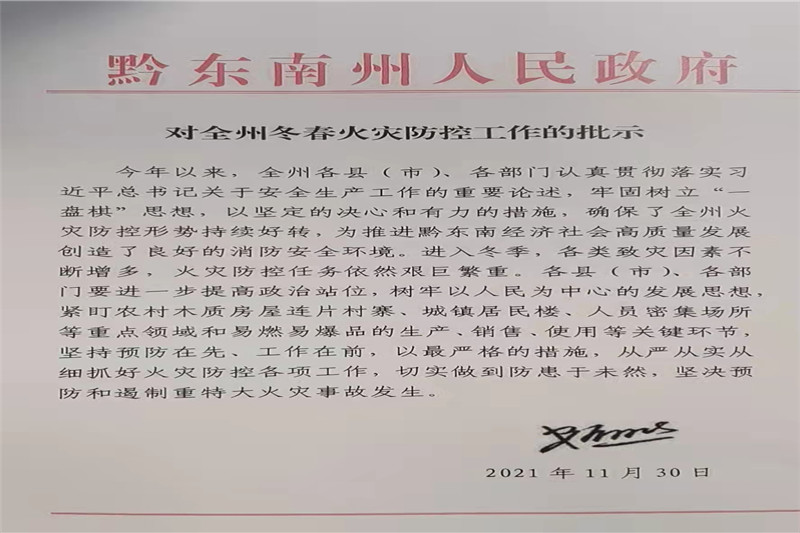 黔东南州人民政府
对全州冬春火灾防控工作的批示
今年以来，全州各县（市）、各部门认真贯彻落实习
近平总书记关于安全生产工作的重要论述，牢固树立“一
盘棋”思想，以坚定的决心和有力的措施，确保了全州火
灾防控形势持续好转，为推进黔东南经济社会高质量发展
创造了良好的消防安全环境。进入冬季，各类致灾因素不
断增多，火灾防控任务依然艰巨繁重。各县（市）、各部
门要进一步提高政治站位，树牢以人民为中心的发展思想，
紧盯农村木质房屋连片村寨、城镇居民楼、人员密集场所
等重点领域和易燃易爆品的生产、销售、使用等关键环节，
坚持预防在先、工作在前，以最严格的措施，从严从实从
细抓好火灾防控各项工作，切实做到防患于未然，坚决预
防和遏制重特大火灾事故发生。
2021 年 11 月 30 日